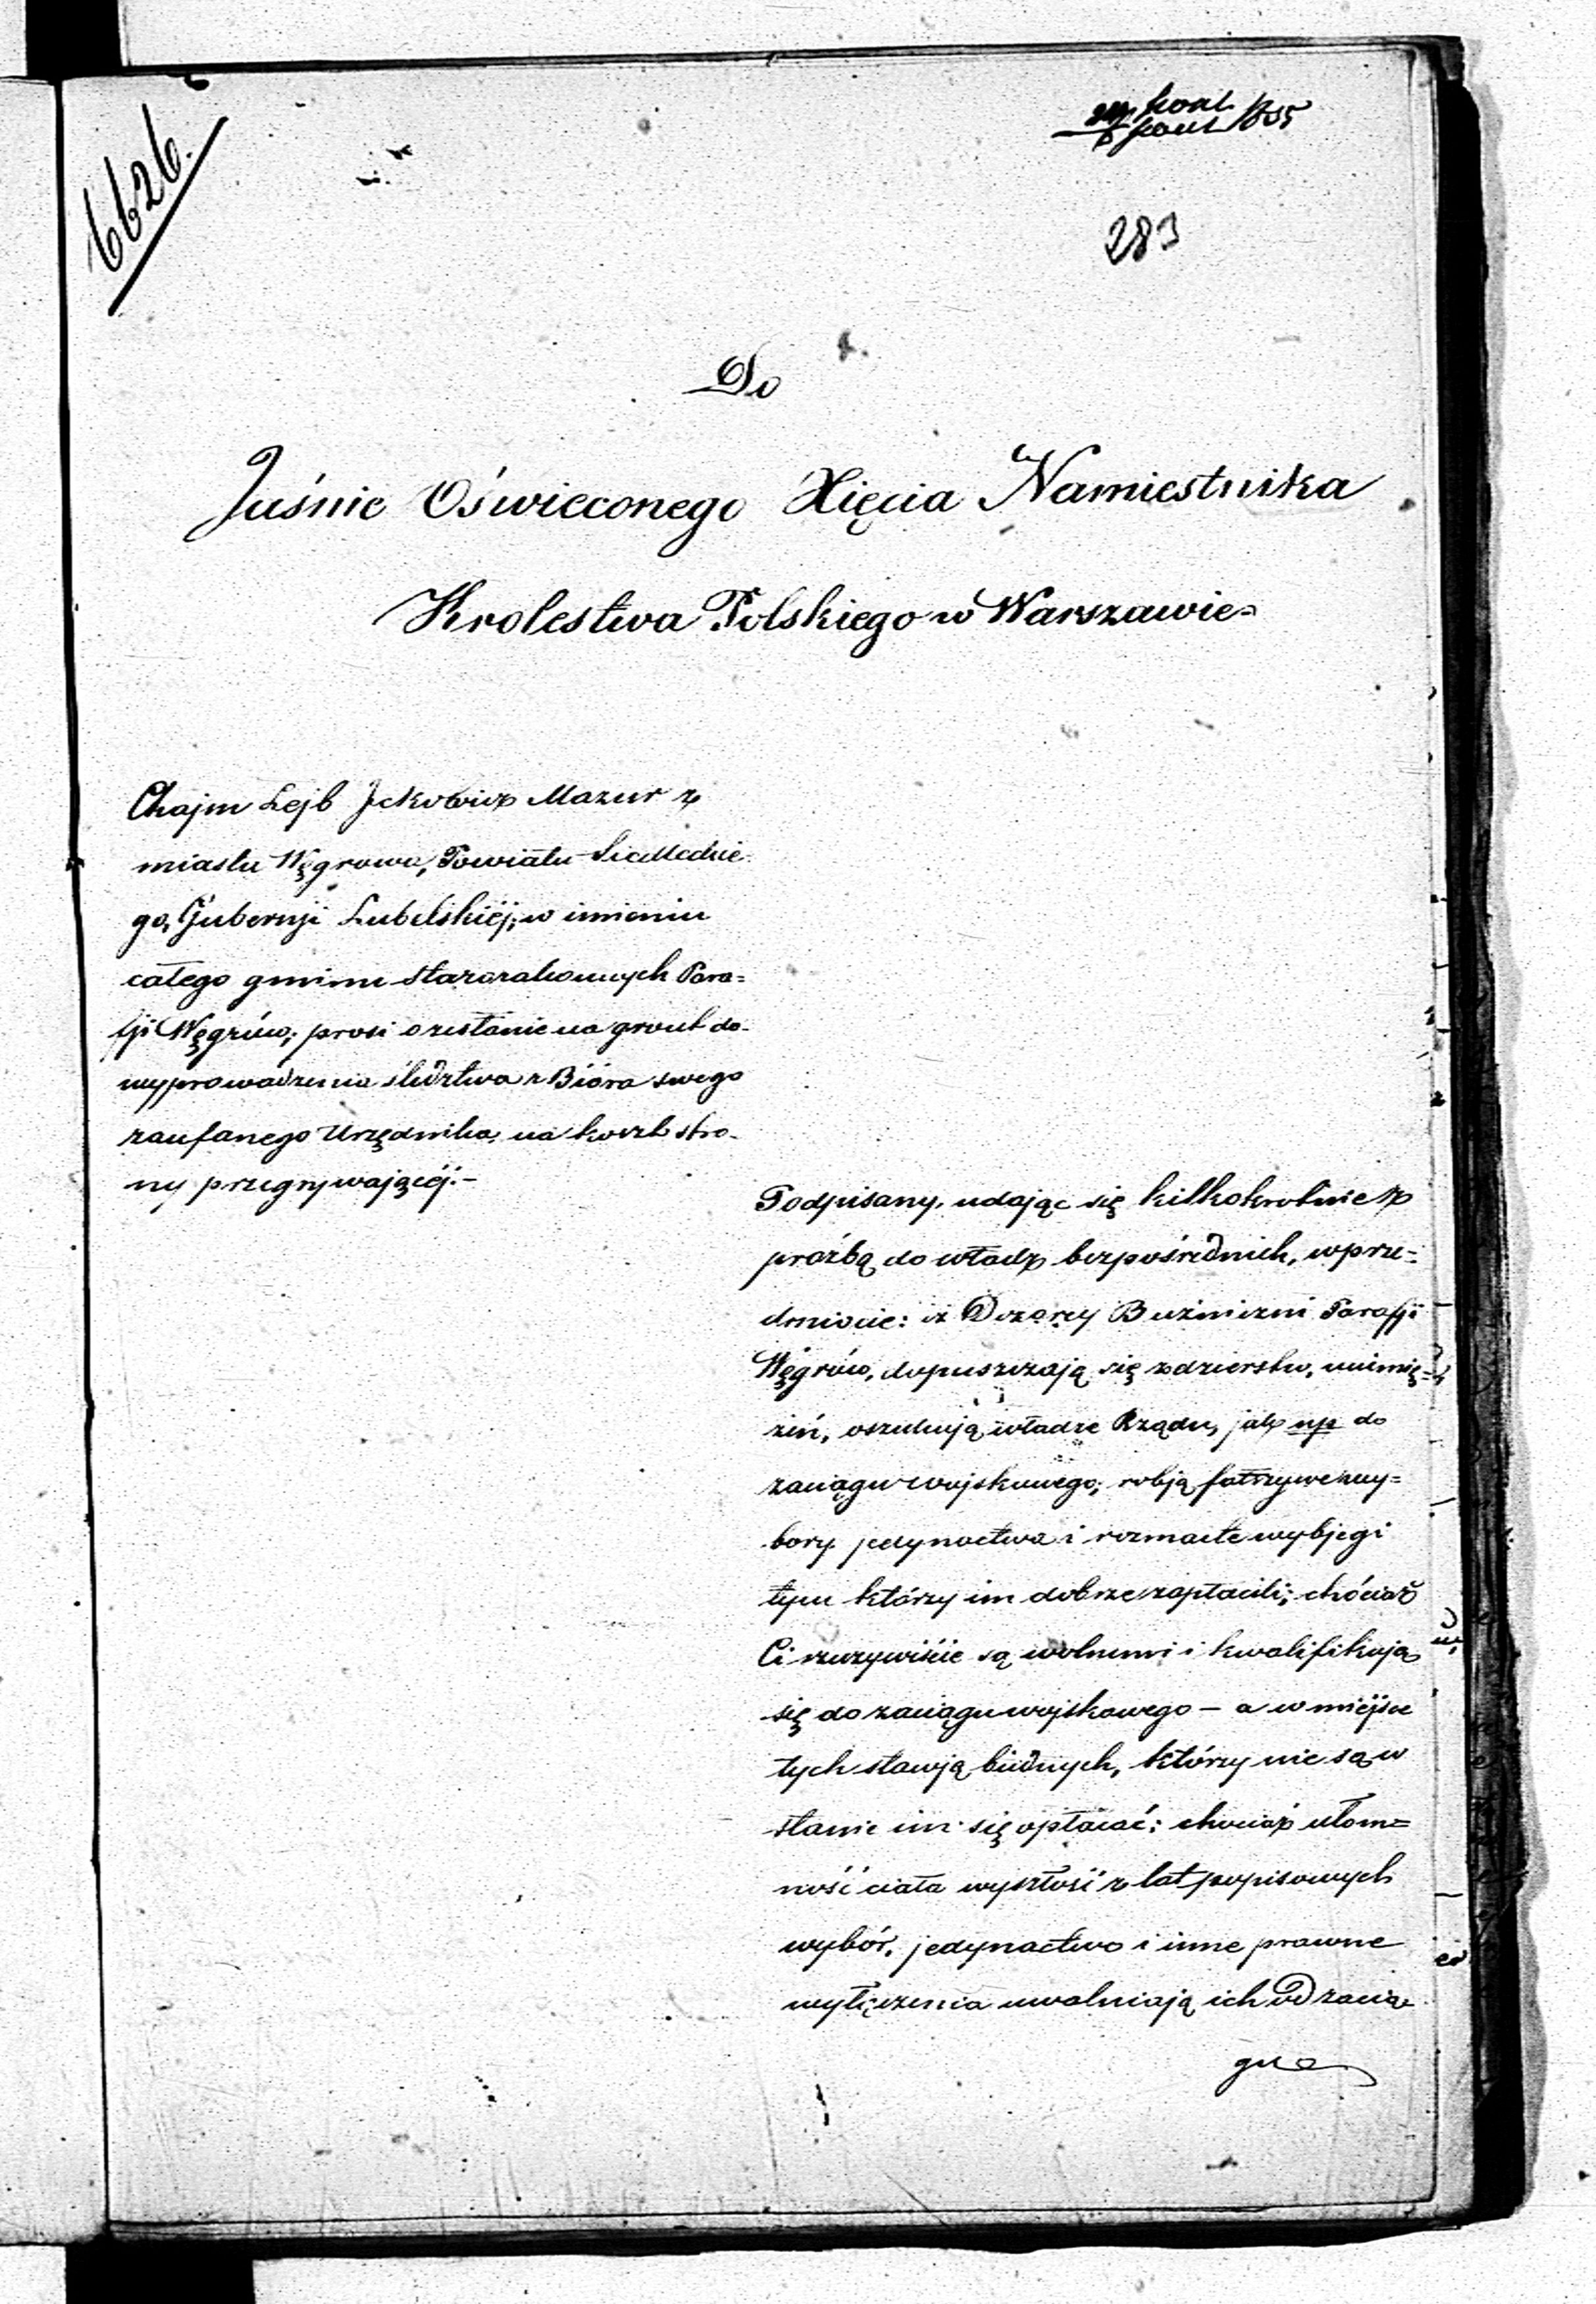 6626.
1855
283
Do
Jaśnie Oświeconego Xięcia Namiestnika
Krolestwa Polskiego w Warszawie
Chajm Lejb Jckowicz Mazur z
miasta Węgrowa, Powiatu Siedleckie-
go, Gubernji Lubelskiéj, w imieniu
całego gminu starozakonnych Para-
fji Węgrów; prosi o zesłanie na grunt do
wyprowadzenia śledztwa z Bióra swego
zaufanego Urzędnika, na koszt stro-
ny przegrywającéj.-
Podpisany, udając się kilkokrotnie z
proźbą do władz bezpośrednich, w prze-
dmiocie: iż Dozorcy Bużniczni Parafji
Węgrów, dopuszczają się zdzierstw, uciemię-
żeń, oszukują władze Rządu, jak np do
zaciągu wojskowego; robją fałszywe wy-
bory jedynactwa i rozmaite wybjegi
tym którzy im dobrze zapłacili; chóciaż
Ci rzeczywiście są wolnemi i kwalifikują
się do zaciągu wojskowego - a w miéjsce
tych stawją biednych, którzy nie są w
stanie im się opłacać; chociaż ułom-
ność ciała wyszłość z lat popisowych
wybór, jedynactwo i inne prawne
wyłączenia uwalniają ich od zacią-
gu